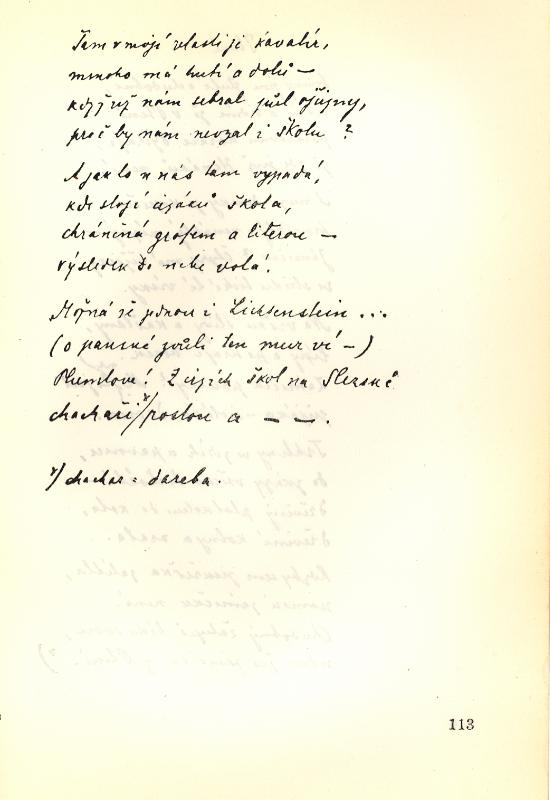 Tam v mojí vlasti je kavalír,
mnoho má hutí a dolů —
když už nám sebral půl dědiny,
proč by nám nevzal i školu?
A jak to u nás tam vypadá,
kde stojí cizáků škola,
chráněná grófem a literou —
výsledek do nebe volá.
Možná že jednou i Lichtenstein ...
(o panské zvůli ten mur ví —)
Plumlove! Z cizích škol na Slezsku
chachaři*/ rostou a — —.
*/ chachar = dareba.
113